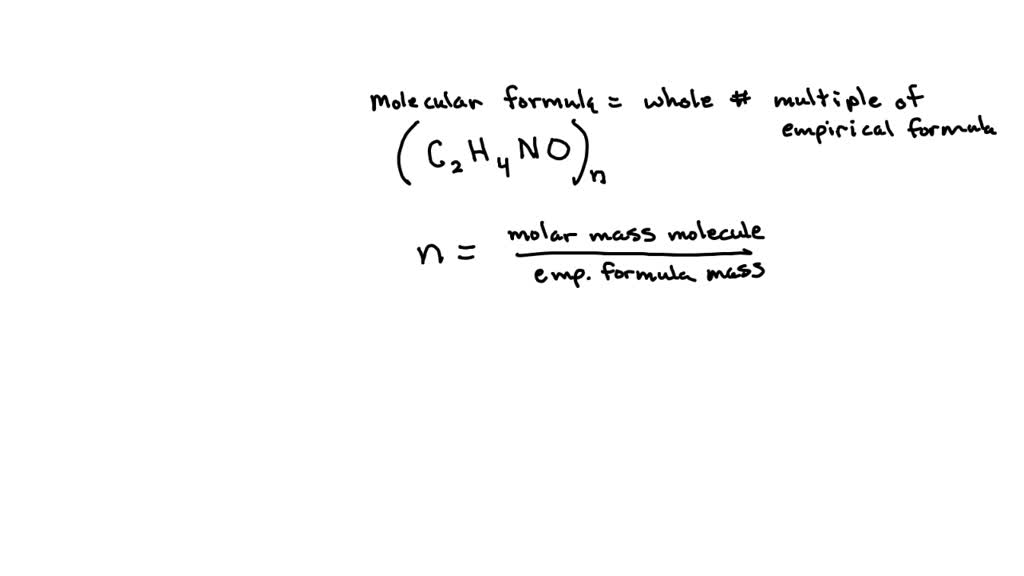 molecular formula = whole # multiple of
empirical formula
(C₂H₄NO)ₙ
n = molar mass molecule
emp. formula mass